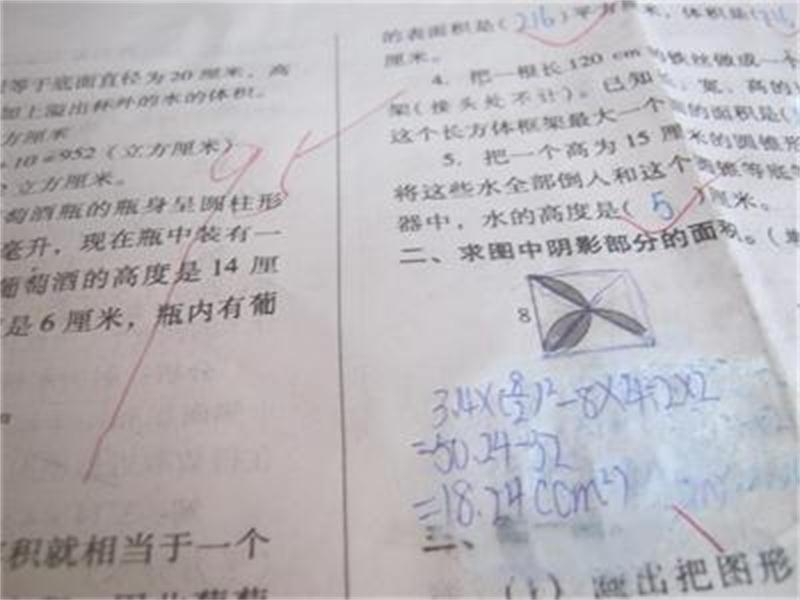 等于底面直径为20厘米，高
加上溢出杯外的水的体积。
方厘米
×10=952（立方厘米）
立方厘米。
萄酒瓶的瓶身呈圆柱形
毫升，现在瓶中装有一
葡萄酒的高度是14厘
是6厘米，瓶内有葡
积就相当于一个
95
的表面积是(216)平方厘米，体积是(216
厘米。
4. 把一根长120 cm的铁丝做成一个
架(接头处不计)。已知长、宽、高的
这个长方体框架最大一个面的面积是(
5. 把一个高为15厘米的圆锥形
将这些水全部倒人和这个圆锥等底等
器中，水的高度是(5)厘米。
二、求图中阴影部分的面积。(单
8
3.14×(8/2)²-8×4÷2×2
=50.24-32
=18.24(cm²)
三、
(1) 画出把图形